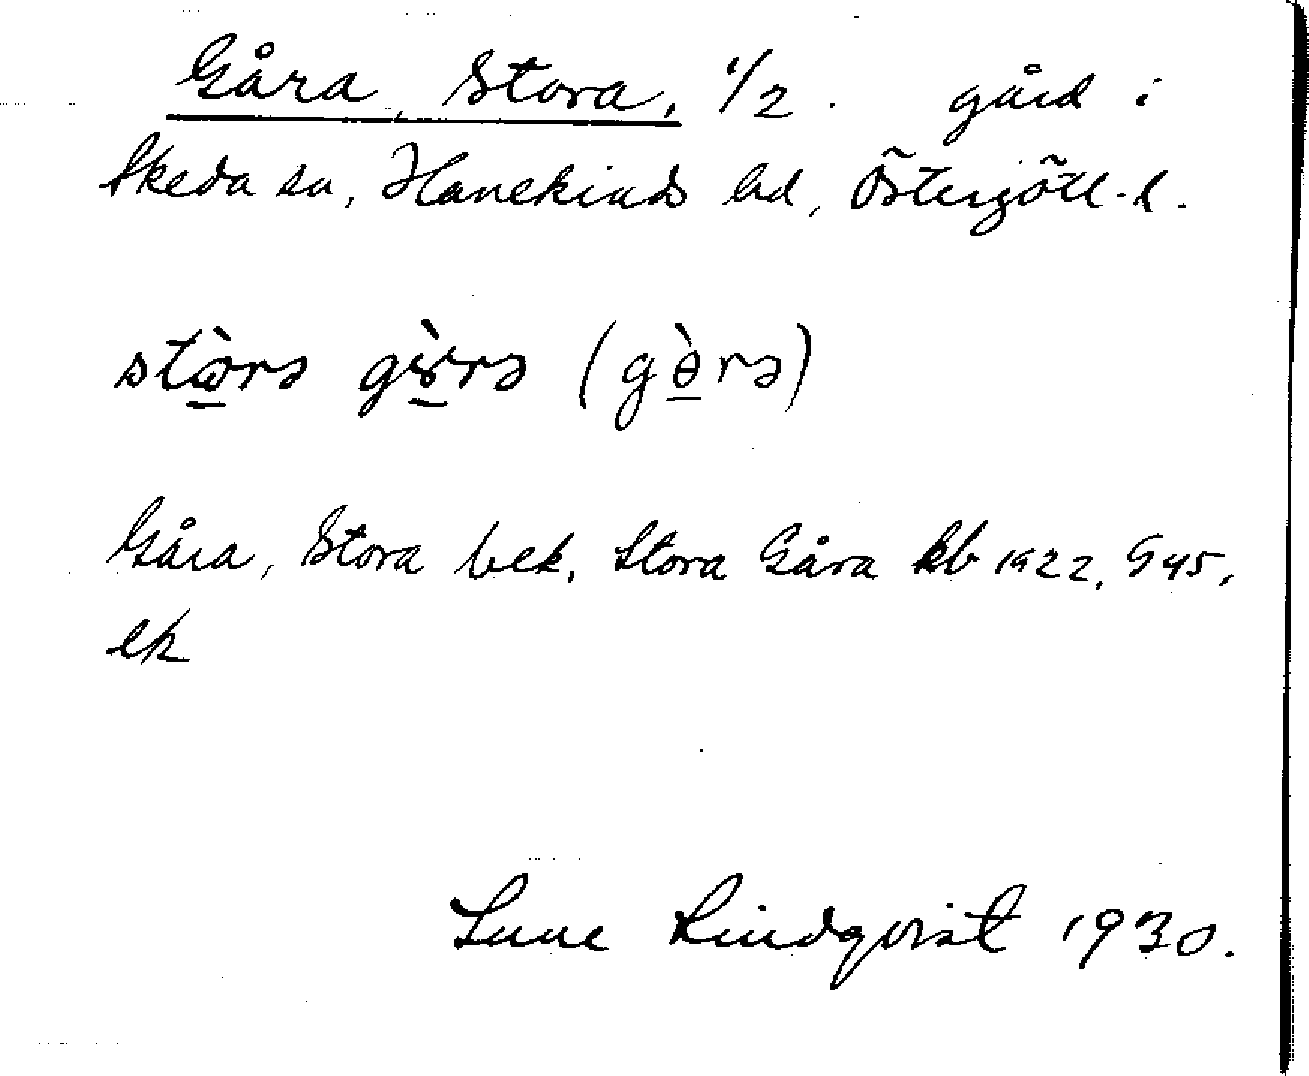 Gåra, Stora, 1/2. gård i
Skeda sn, Hanekinds hd, Östergötl. l.
stὼrə gɤ̀rə (gɵ̀rə)
Gåra, Stora bek. Stora Gåra kb 1922, G 45,
ek
Sune Lindqvist 1930.